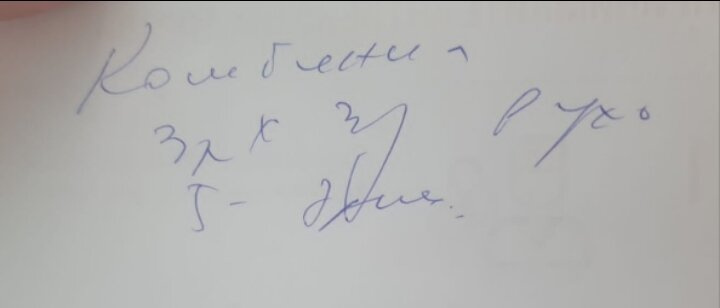 Комбинил
3к х 3р в ухо
5 - дней.